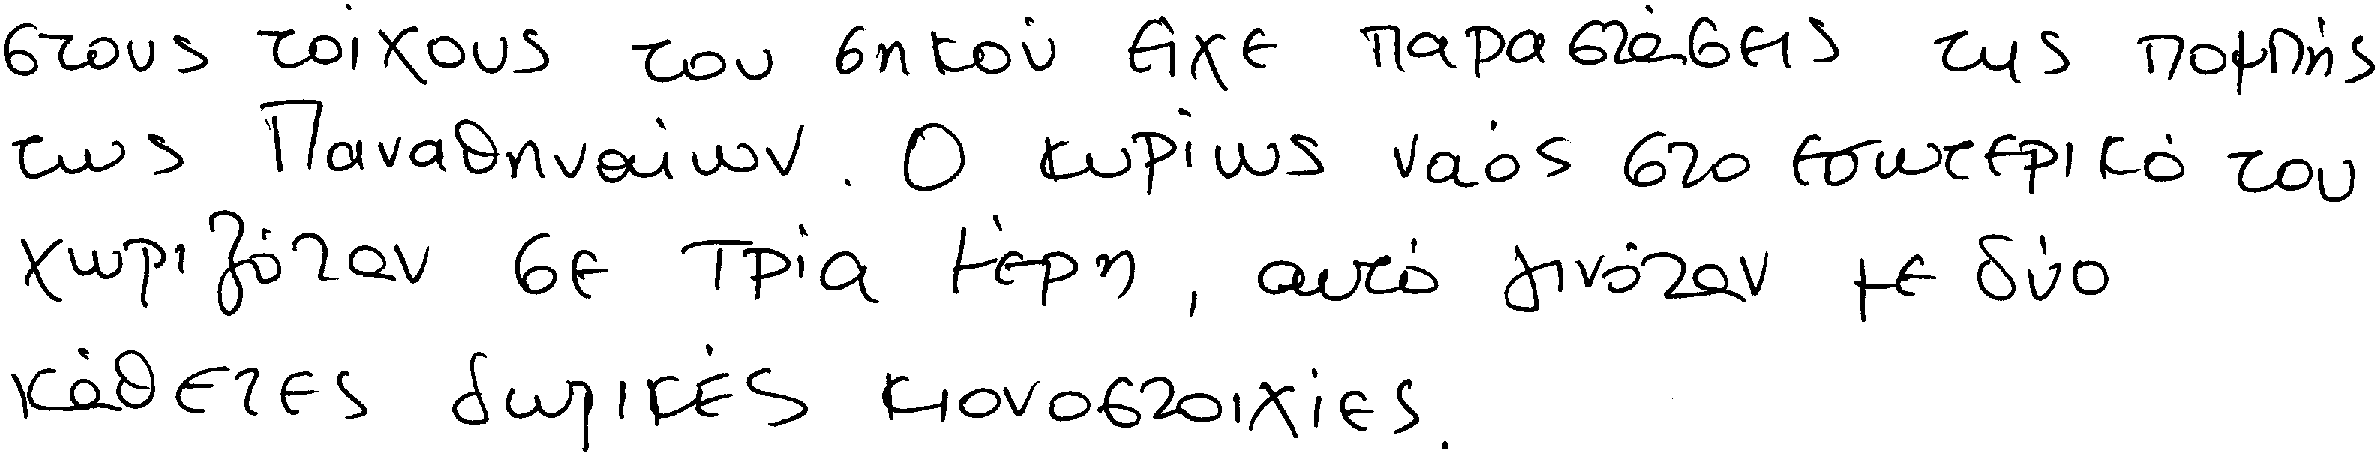 στους τοίχους του σηκού είχε παραστάσεις της πομπής
τως Παναθηναίων. Ο κυρίως ναός στο εσωτερικό του
χωριζόταν σε τρία μέρη, αυτό γινόταν με δύο
κάθετες δωρικές κιονοστοιχίες.